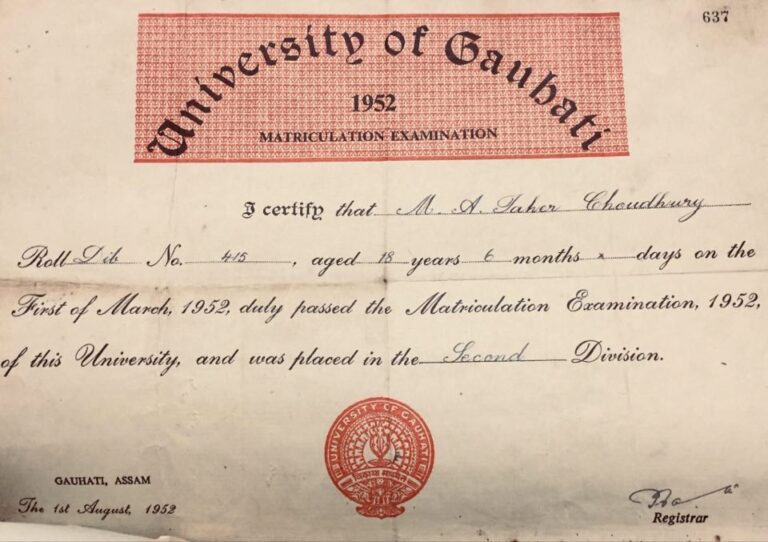 637
University of Gauhati
1952
MATRICULATION EXAMINATION
I certify that M. A. Taher Choudhury
Roll Dib No. 415, aged 18 years 6 months x days on the
First of March, 1952, duly passed the Matriculation Examination, 1952,
of this University, and was placed in the Second Division.
UNIVERSITY OF GAUHATI
GAUHATI, ASSAM
The 1st August, 1952
Registrar